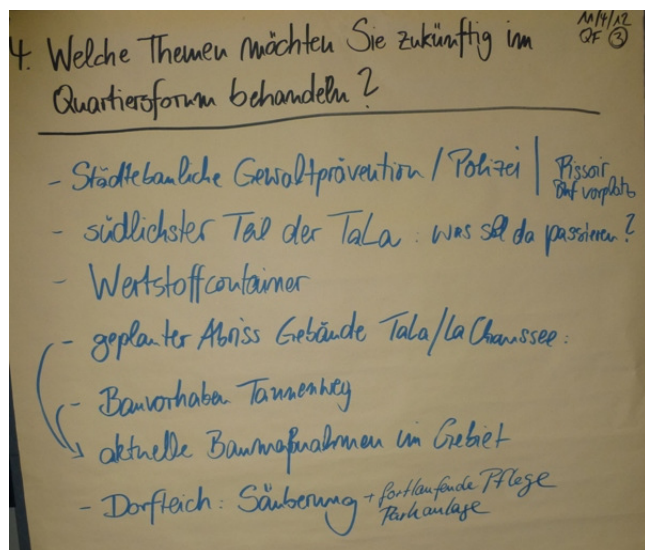 11/4/12
QF ③
4. Welche Themen möchten Sie zukünftig im
Quartiersforum behandeln?
- Städtebauliche Gewaltprävention / Polizei | Pissoir
Bhf vorplatz
- südlichster Teil der TaLa: was soll da passieren?
- Wertstoffcontainer
- geplanter Abriss Gebände TaLa/La Chaussee:
- Bauvorhaben Tannenweg
aktuelle Baumaßnahmen im Gebiet
- Dorfteich: Säuberung + fortlaufende Pflege
Parkanlage